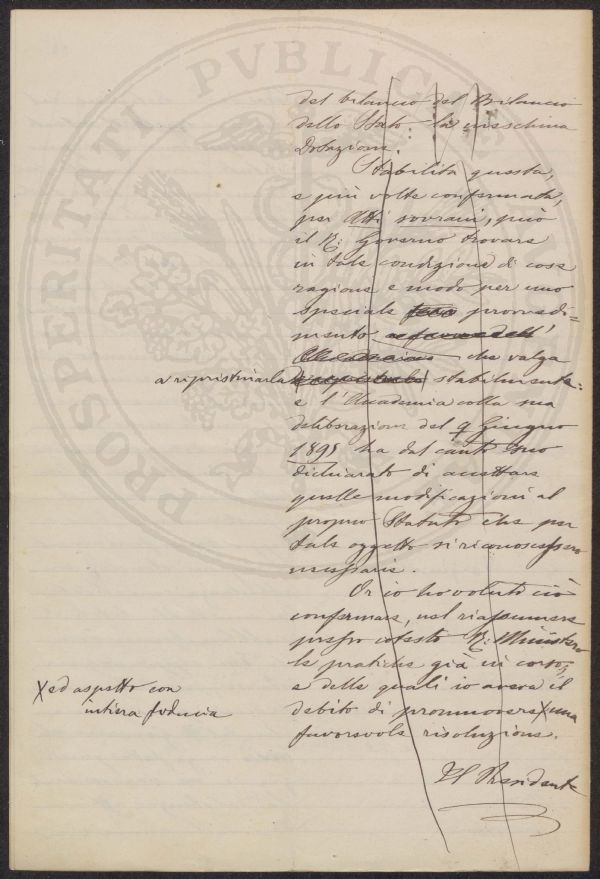 PROSPERITATI PVBLICAE
del bilancio del Bilancio
dello Stato la meschina
Dotazione.
Stabilita questa,
e più volte confermata,
per Atti sovrani, può
il R: Governo trovare
in tale condizione di cose
ragione e modo per uno
speciale provvedi=
mento che valga
a ripristinarla stabilmente:
e l'Accademia colla sua
deliberazione del 9 Giugno
1895 ha dal canto suo
dichiarato di accettare
quelle modificazioni al
proprio Statuto che per
tale oggetto si riconoscessero
necessarie.
Or io ho voluto ciò
confermare, nel riassumere
presso cotesto R: Ministero
le pratiche già in corso,
e delle quali io aveva il
debito di promuovere X una
favorevole risoluzione.
X ed aspetto con
intiera fiducia
Il Presidente